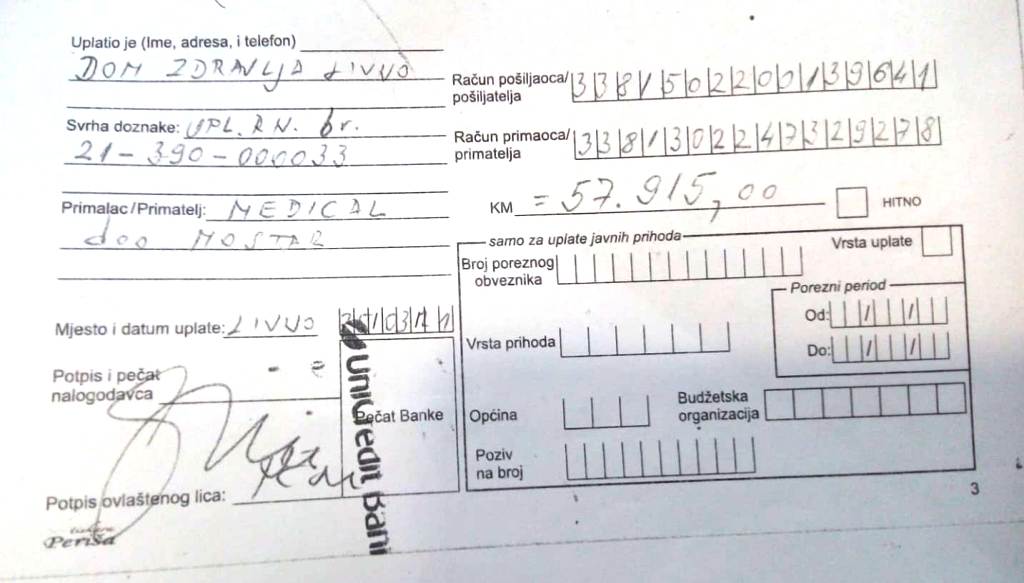 Uplatio je (Ime, adresa, i telefon)
DOM ZDRAVLJA LIVNO
Svrha doznake: UPL. RN. br.
21-390-000033
Primalac/Primatelj: MEDICAL
doo MOSTAR
Mjesto i datum uplate: LIVNO
Potpis i pečat
nalogodavca
Potpis ovlaštenog lica:
Periša
Pečat Banke
UniCredit Bank
Račun pošiljaoca/
pošiljatelja 3381502200139641
Račun primaoca/
primatelja 3381302247329278
KM = 57.915,00
HITNO
samo za uplate javnih prihoda
Vrsta uplate
Broj poreznog
obveznika
Porezni period
Od: / /
Do: / /
Vrsta prihoda
Općina
Budžetska
organizacija
Poziv
na broj
3